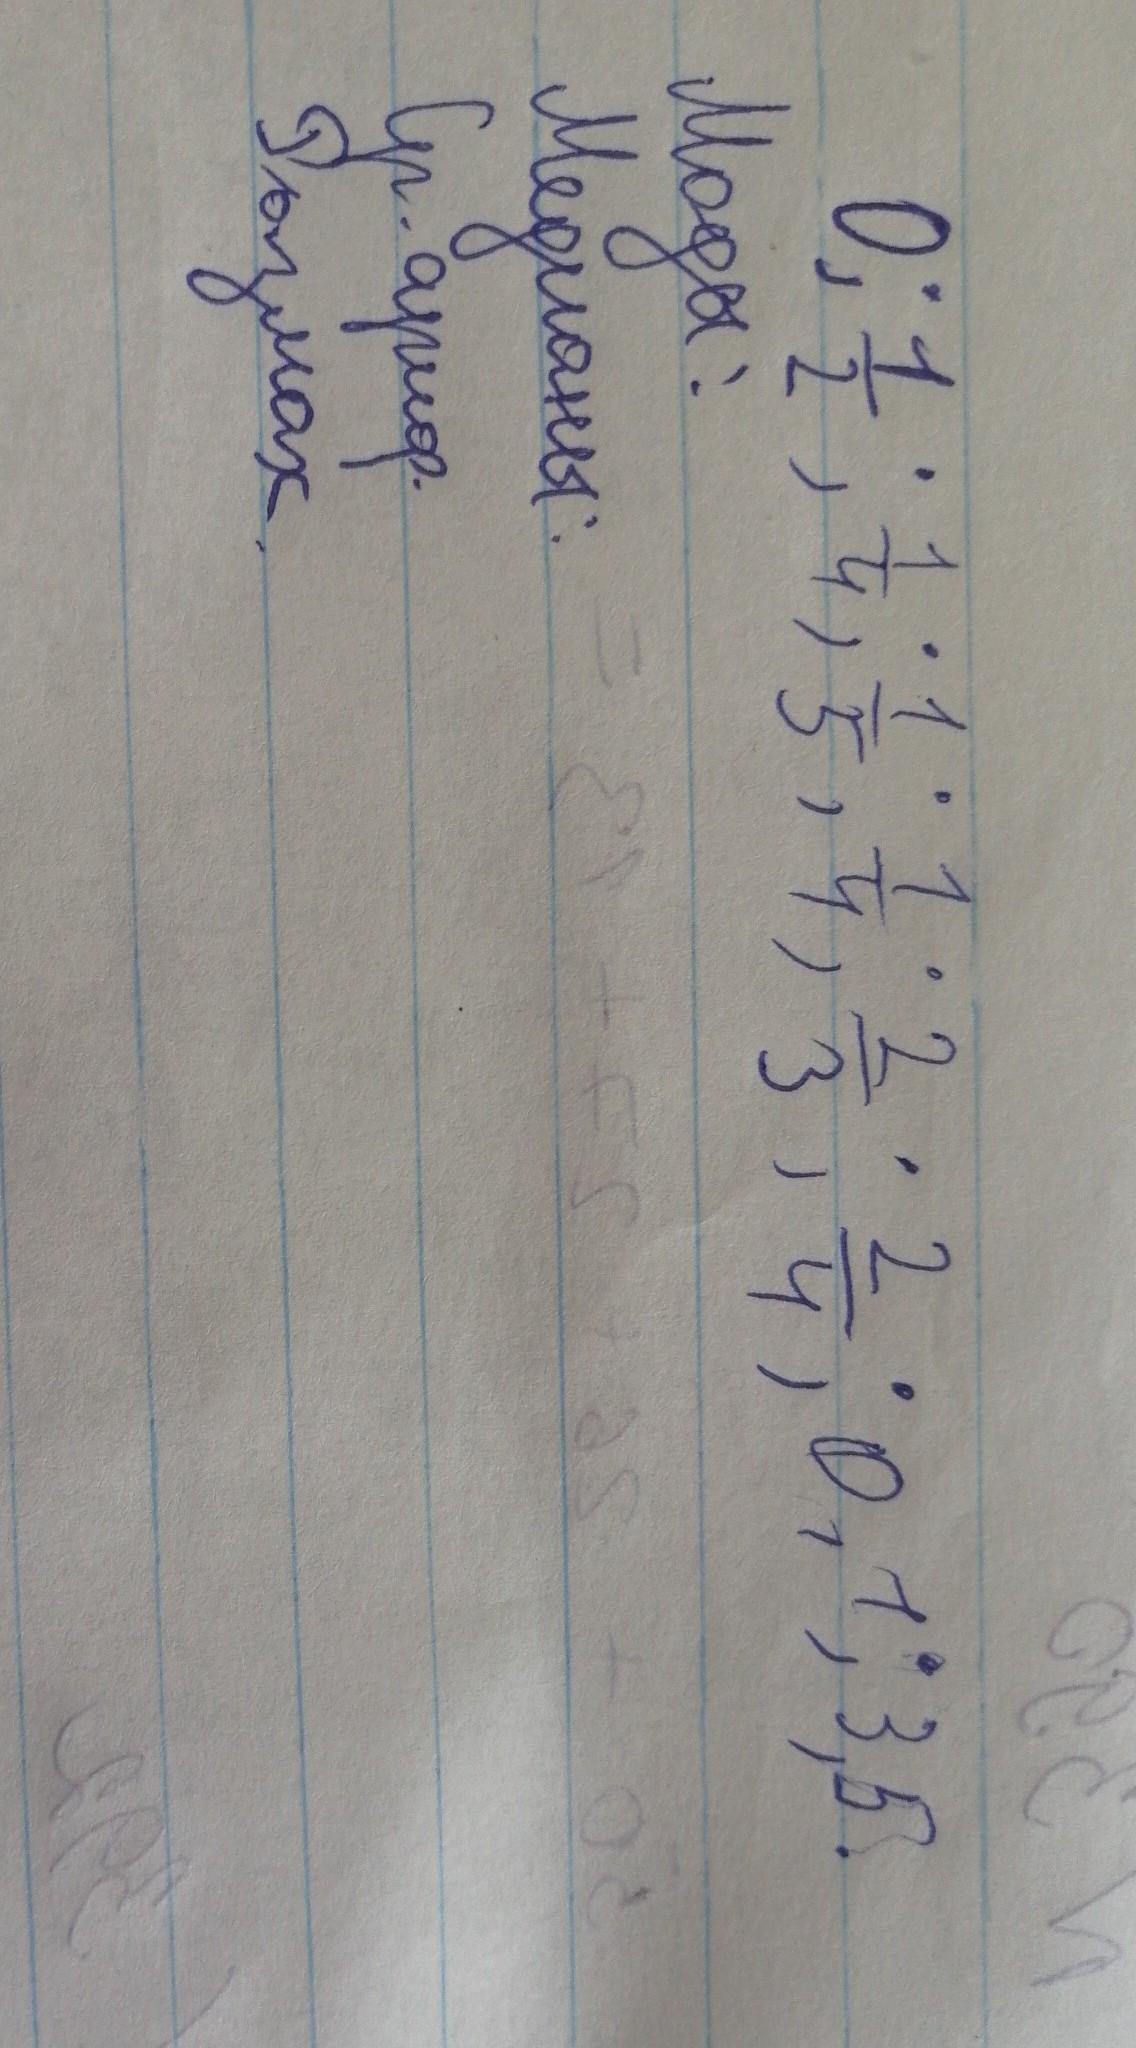 0; 1/2; 1/4; 1/5; 1/4; 2/3; 2/4; 0,1; 3,5.
Моды:
Медианы:
Ср. ариф.
Размах.